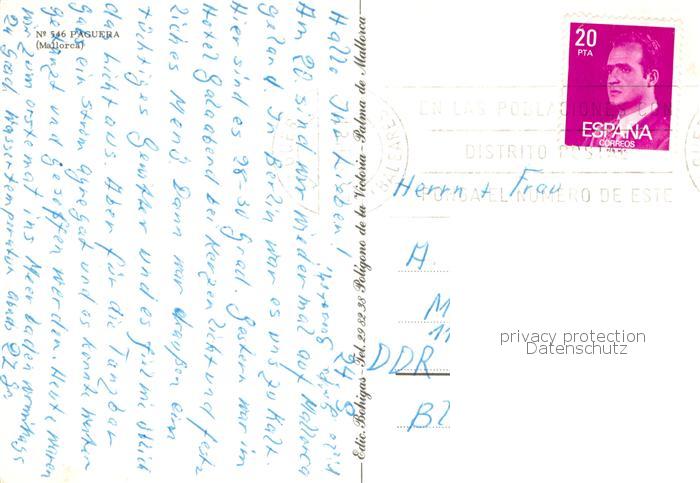 Nº 546 PAGUERA
(Mallorca)
24.9.
Hallo Ihr Lieben!
Am 22 sind wir wieder mal auf Mallorca
geland. In Berlin war es uns zu kalt.
Hier sind es 28-30 Grad. Gestern war im
Hotel Galaabend bei Kerzenlicht und fest=
liches Menü. Dann war draußen ein
tüchtiges Gewitter und es fiel mi
das Licht aus. Aber für die Tanzbar
gab es ein Strom und es konnte weiter
getanzt und gesoffen werden. Heute waren
wir zum erstemal ins Meer baden
24 Grad Wassertemperatur
Edic. Bohigas - Tel. 29 82 38 Polígono de la Victoria - Palma de Mallorca
20
PTA
ESPAÑA
CORREOS
EN LAS POBLACIONES CON
DISTRITO POSTAL
PONGA EL NUMERO DE ESTE
BALEARES
Herrn + Frau
A.
M
11
DDR
privacy protection
Datenschutz